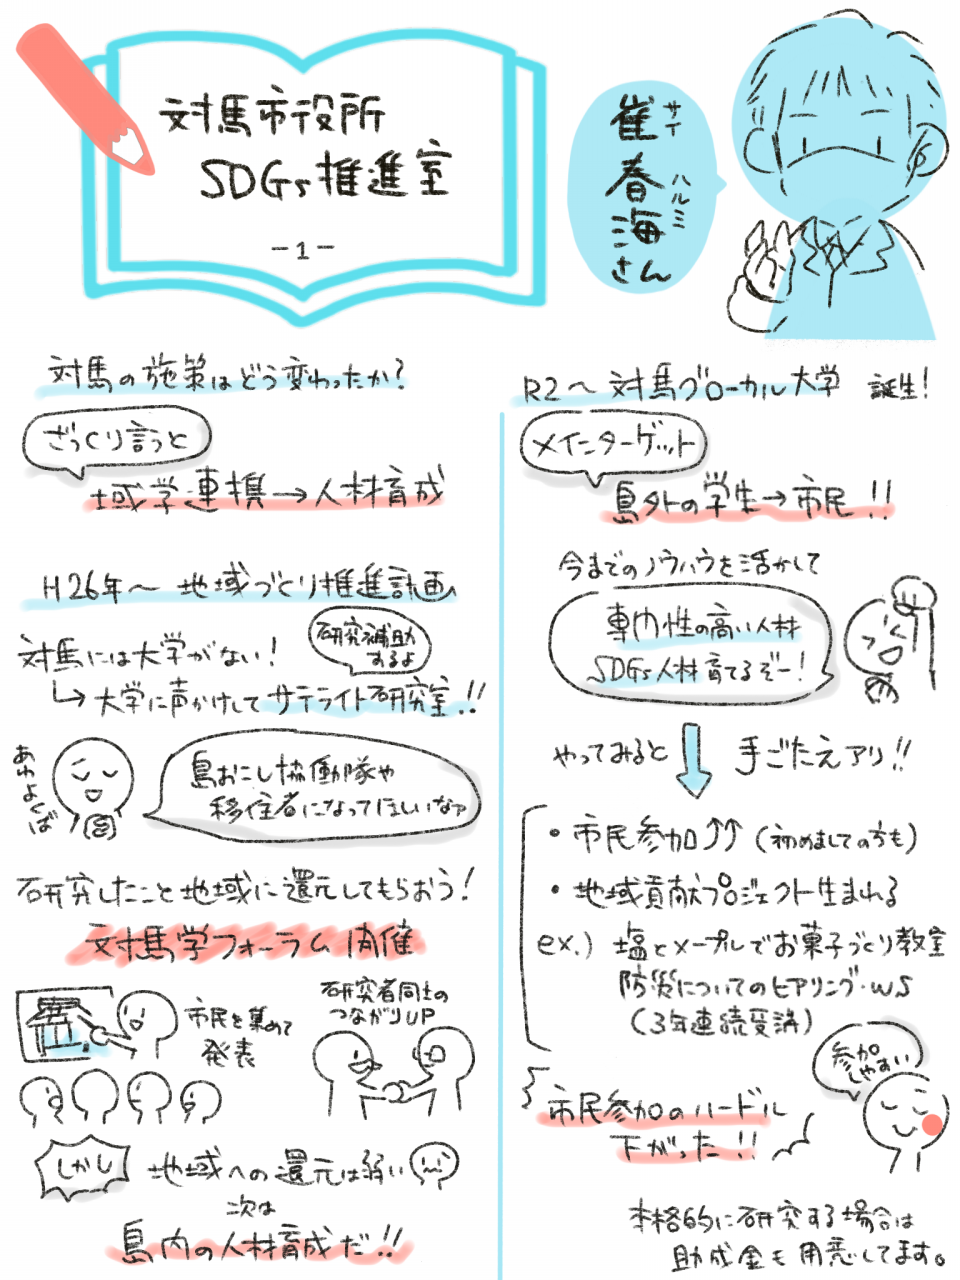 対馬市役所
SDGs推進室
-1-
崔春海さん
サイ
ハルミ
対馬の施策はどう変わったか?
ざっくり言うと
域学連携→人材育成
H26年〜 地域づくり推進計画
対馬には大学がない!
研究補助
するよ
↳大学に声かけしてサテライト研究室!!
あわよくば
島おこし協働隊や
移住者になってほしいなァ
研究したこと地域に還元してもらおう!
対馬学フォーラム開催
市民を集めて
発表
研究者同士の
つながりUP
しかし
地域への還元は弱い
次は
島内の人材育成だ!!
R2〜対馬グローカル大学 誕生!
メインターゲット
島外の学生→市民!!
今までのノウハウを活かして
専門性の高い人材
SDGs人材育てるぞー!
やってみると 手ごたえアリ!!
・市民参加↑↑(初めましての方も)
・地域貢献プロジェクト生まれる
ex.) 塩とメープルでお菓子づくり教室
防災についてのヒアリング・WS
(3年連続受講)
参加
しやすい
市民参加のハードル
下がった!!
本格的に研究する場合は
助成金も用意してます。